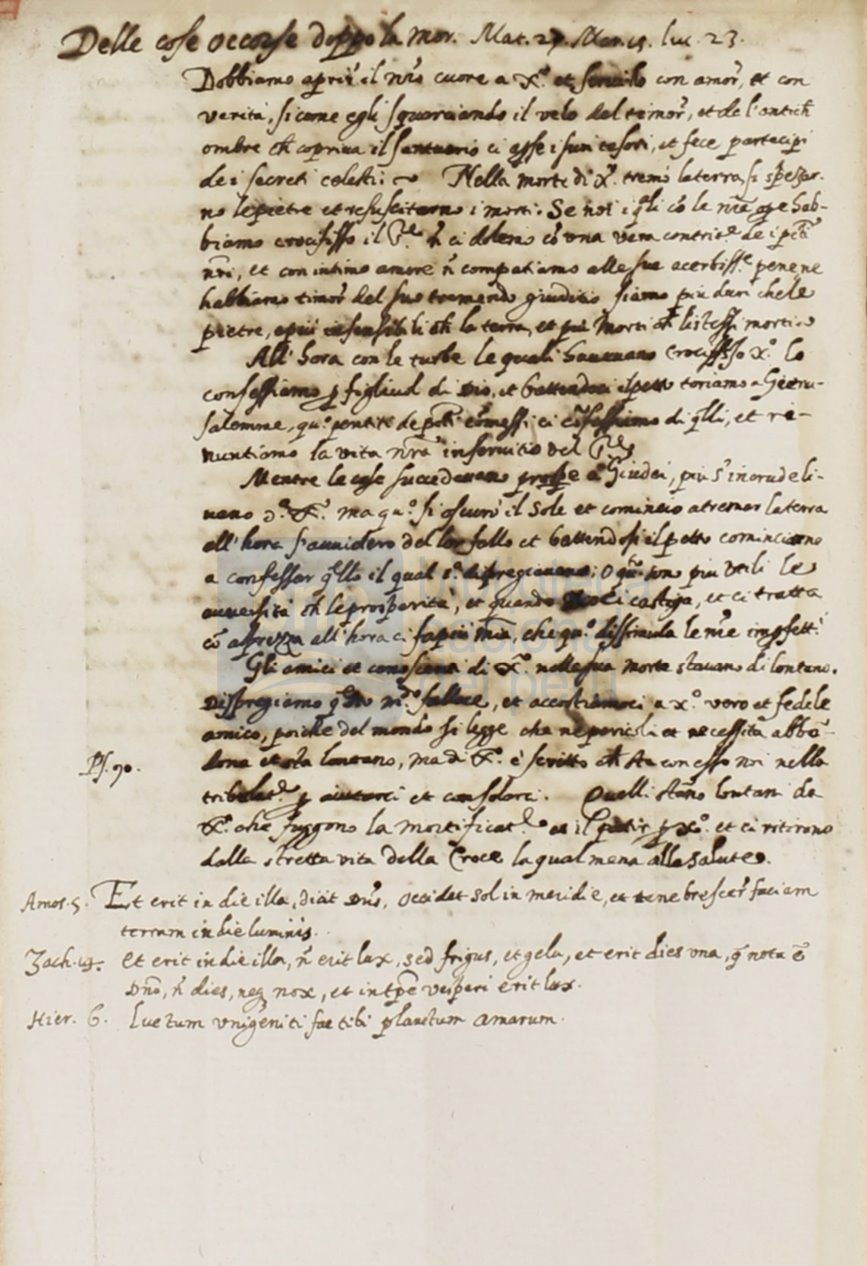 Delle cose occorse doppo la mor. Mat. 27. Mar. 15. luc. 23.
Dobbiamo aprir il nr̃o cuore a X.º et con amor, et con
verità, si come egli squarciando il velo del timor, et de l'antich
ombre ch copriua il santuario ci i suoi tesori, et fece partecipi
de i secreti celesti. Nella morte di X.º tremò la terra, si spezzar-
no le pietre et resuscitarno i morti. Se noi i q̃li cõ le nr̃e hab-
biamo crocifisso il ñ ci dolemo cõ una vera contrit.e de i pcti
nr̃i, et con intimo amore ñ compatiamo alle sue acerbiss.e pene ne
habbiamo timor del suo tremendo giuditio siamo piu duri che le
pietre, e piu insensibili ch la terra, et piu morti ch l'istessi morti.
All' hora con le turbe le quali haueuano crocifisso X.º lo
confessiamo p figliuol di Dio, et battendoci il petto torniamo a Gieru-
salemme, qũ pentiti de pcti cõmessi ci cõfessiamo di q̃lli, et re-
nuntiamo la vita nr̃a in seruitio del
Mentre le cose succedeuano prospe a Giudei, piu s'incrudeli-
uano X.º ma qũ si oscurò il sole et cominciò a tremar la terra
all' hora s'auuidero del lor fallo et battendosi il petto cominciarno
a confessar q̃llo il qual dispregiauano; O quãto sono piu utili le
auuersità ch le prosperità, et quando ci castiga, et ci tratta
cõ asprezza all' hora ci fa piu mia, che qũ dissimula le nr̃e impfett.i
Gli amici et conoscenti di X.º nella sua morte stauano di lontano.
Dispregiamo q̃sto m.º fallace, et accostiamoci a X.º vero et fedele
amico, poiche del mondo si legge che ne pericoli et necessità abbã-
dona et sta lontano, ma di X.º è scritto ch sta con esso noi nella
Ps. 90.
tribulat.e p aiutarci et consolarci. Quelli stãno lontani da
X.º che fuggono la mortificat.e et il patir p X.º et ci ritirono
dalla stretta vita della Croce la qual mena alla salute.
Amos. 5. Et erit in die illa, dicit Dñs, occidet sol in meridie, et tenebrescer faciam
terram in die luminis.
Zach. 14. et erit in die illa, ñ erit lux, sed frigus, et gelu, et erit dies una, q̃ nota ẽ
Dño, ñ dies, neq nox, et in tpẽ vesperi erit lux.
Hier. 6. luctum unigeniti fac tibi planctum amarum.